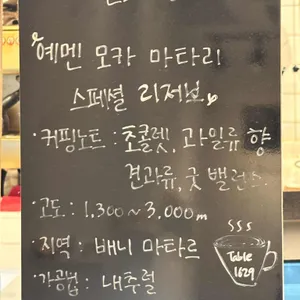 예멘 모카 마타리
스페셜 리저브
·커핑노트 : 초콜렛, 과일류 향
견과류, 굿 밸런스.
·고도 : 1,300~3,000m
·지역 : 배니 마타르
·가공법 : 내추럴
Table
1629